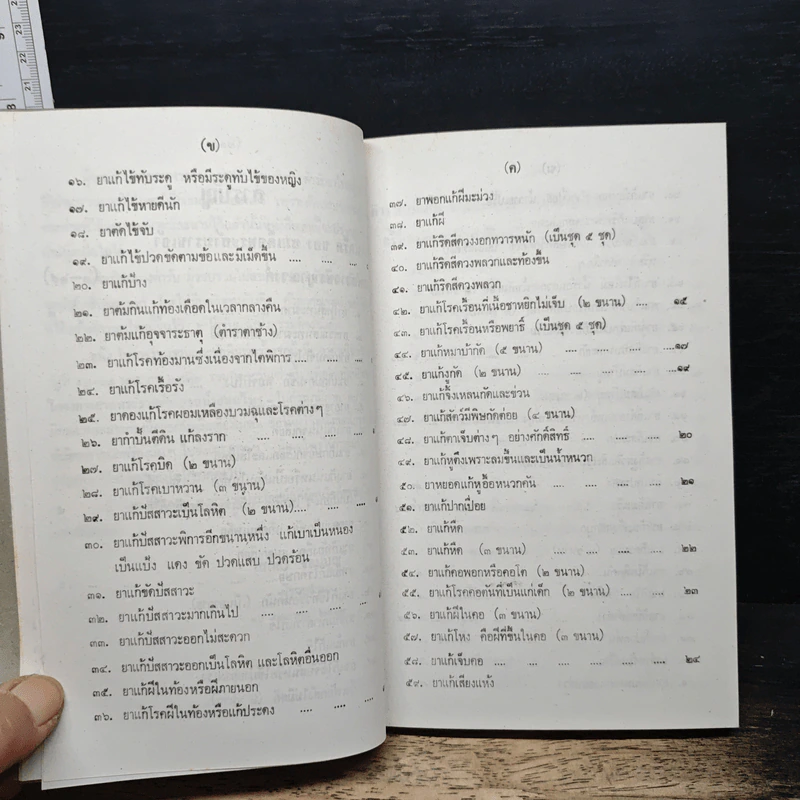 (ข)
๑๖. ยาแก้ไข้ทับระดู หรือมีระดูทับไข้ของหญิง
๑๗. ยาแก้ไข้หายดีนัก
๑๘. ยาตัดไข้จับ
๑๙. ยาแก้ไข้ปวดขัดตามข้อและมีเม็ดขึ้น .... ....
๒๐. ยาแก้บ้าง
๒๑. ยาต้มกินแก้ท้องเดือดในเวลากลางคืน
๒๒. ยาต้มแก้อุจจาระธาตุ (ตำราตาช้าง)
๒๓. ยาแก้โรคท้องมานซึ่งเนื่องจากไตพิการ .... .... ....
๒๔. ยาแก้โรคเรื้อรัง
๒๕. ยาดองแก้โรคผอมเหลืองบวมฉุและโรคต่างๆ
๒๖. ยากำปั้นตีดิน แก้ลงราก .... .... .... ....
๒๗. ยาแก้โรคบิด (๒ ขนาน)
๒๘. ยาแก้โรคเบาหวาน (๓ ขนาน)
๒๙. ยาแก้ปัสสาวะเป็นโลหิต (๒ ขนาน).... .... ....
๓๐. ยาแก้ปัสสาวะพิการอีกขนานหนึ่ง แก้เบาเป็นหนอง
เป็นแป้ง แดง ขัด ปวดแสบ ปวดร้อน
๓๑. ยาแก้ขัดปัสสาวะ
๓๒. ยาแก้ปัสสาวะมากเกินไป .... .... .... ....
๓๓. ยาแก้ปัสสาวะออกไม่สะดวก
๓๔. ยาแก้ปัสสาวะออกเป็นโลหิต และโลหิตอื่นออก
๓๕. ยาแก้ฝีในท้องหรือฝีภายนอก
๓๖. ยาแก้โรคฝีในท้องหรือแก้ประดง .... .... ....
(ค)
๓๗. ยาพอกแก้ฝีมะม่วง
๓๘. ยาแก้ฝี
๓๙. ยาแก้ริดสีดวงงอกทวารหนัก (เป็นชุด ๕ ชุด)
๔๐. ยาแก้ริดสีดวงพลวกและท้องขึ้น
๔๑. ยาแก้ริดสีดวงพลวก
๔๒. ยาแก้โรคเรื้อนที่เนื้อชาหยิกไม่เจ็บ (๒ ขนาน) .... ๑๕
๔๓. ยาแก้โรคเรื้อนหรือพยาธิ์ (เป็นชุด ๕ ชุด)
๔๔. ยาแก้หมาบ้ากัด (๕ ขนาน) .... .... .... ๑๗
๔๕. ยาแก้งูกัด (๒ ขนาน) .... .... .... .... ๑๙
๔๖. ยาแก้จิ้งเหลนกัดและข่วน
๔๗. ยาแก้สัตว์มีพิษกัดต่อย (๔ ขนาน)
๔๘. ยาแก้ตาเจ็บต่างๆ อย่างศักดิ์สิทธิ์ .... .... .... ๒๐
๔๙. ยาแก้หูตึงเพราะลมขึ้นและเป็นน้ำหนวก
๕๐. ยาหยอดแก้หูอื้อหนวกคัน .... .... .... ๒๑
๕๑. ยาแก้ปากเปื่อย
๕๒. ยาแก้หืด
๕๓. ยาแก้หืด (๓ ขนาน) .... .... .... .... ๒๒
๕๔. ยาแก้คอพอกหรือคอโต (๒ ขนาน)
๕๕. ยาแก้โรคคอตันที่เป็นแก่เด็ก (๒ ขนาน) .... .... ๒๓
๕๖. ยาแก้ฝีในคอ (๓ ขนาน)
๕๗. ยาแก้โหง คือฝีที่ขึ้นในคอ (๓ ขนาน)
๕๘. ยาแก้เจ็บคอ .... .... .... .... .... ๒๔
๕๙. ยาแก้เสียงแห้ง